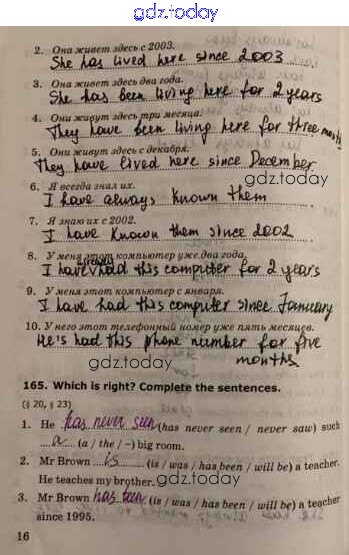 gdz.today
2. Она живет здесь с 2003.
She has lived here since 2003
gdz.today
3. Она живет здесь два года.
She has been living here for 2 years
4. Они живут здесь три месяца.
They have been living here for three months
5. Они живут здесь с декабря.
They have lived here since December
gdz.today
6. Я всегда знал их.
I have always known them
7. Я знаю их с 2002.
I have known them since 2002
8. У меня этот компьютер уже два года.
already
I have had this computer for 2 years
9. У меня этот компьютер с января.
I have had this computer since January
10. У него этот телефонный номер уже пять месяцев.
He's had this phone number for five
months
gdz.today
165. Which is right? Complete the sentences.
(§ 20, § 23)
1. He has never seen (has never seen / never saw) such
a (a / the / –) big room.
2. Mr Brown is (is / was / has been / will be) a teacher.
He teaches my brother.
gdz.today
3. Mr Brown has been (is / was / has been / will be) a teacher
since 1995.
16